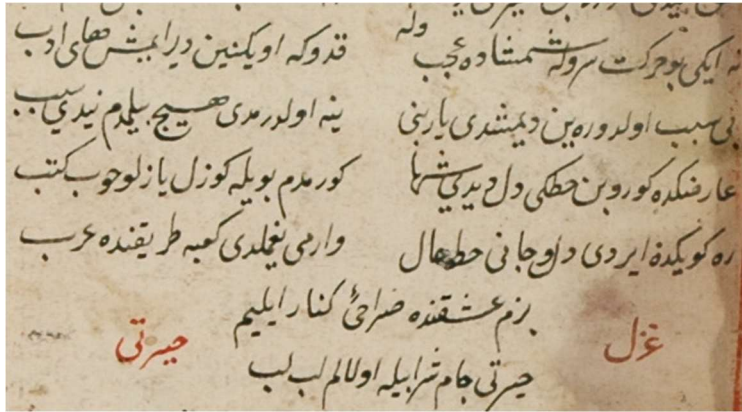 وله
نه ایکی بو حرکت سروله شمشاده عجب قدوکه اویکنین دیرایمش های ادب
بی سبب اولدوره ین دیمشدی یار بنی ینه اولدرمدی هیچ بیلمدم نیدی سبب
عارضکده کوروبن خطکی دل دیدی شها کورمدم بویله کوزل یازلو خوب کتب
ره کویکده ایردی دل و جانی خط خال وارمی یغملدی کعبه طریقنده عرب
بزم عشقنده صراحئ کنار ایلیم
غزل حیرتی
حیرتی جام شرابیله اولالم لب لب